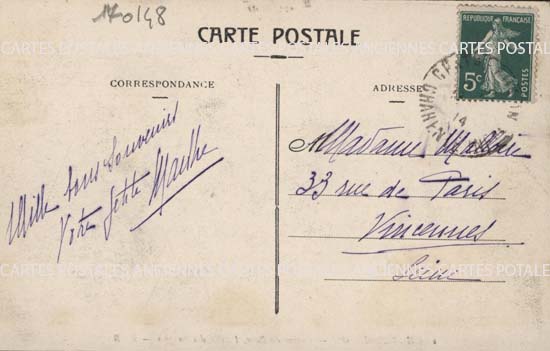 170148
CARTE POSTALE
CORRESPONDANCE
Mille bons souvenirs
Votre petite Marthe
ADRESSE
Madame
33 rue de Paris
Vincennes
Seine
REPUBLIQUE FRANÇAISE
5c
POSTES
14
CARTES POSTALES ANCIENNES CARTES POSTALES
CARTES POSTALES ANCIENNES CARTES POSTALES